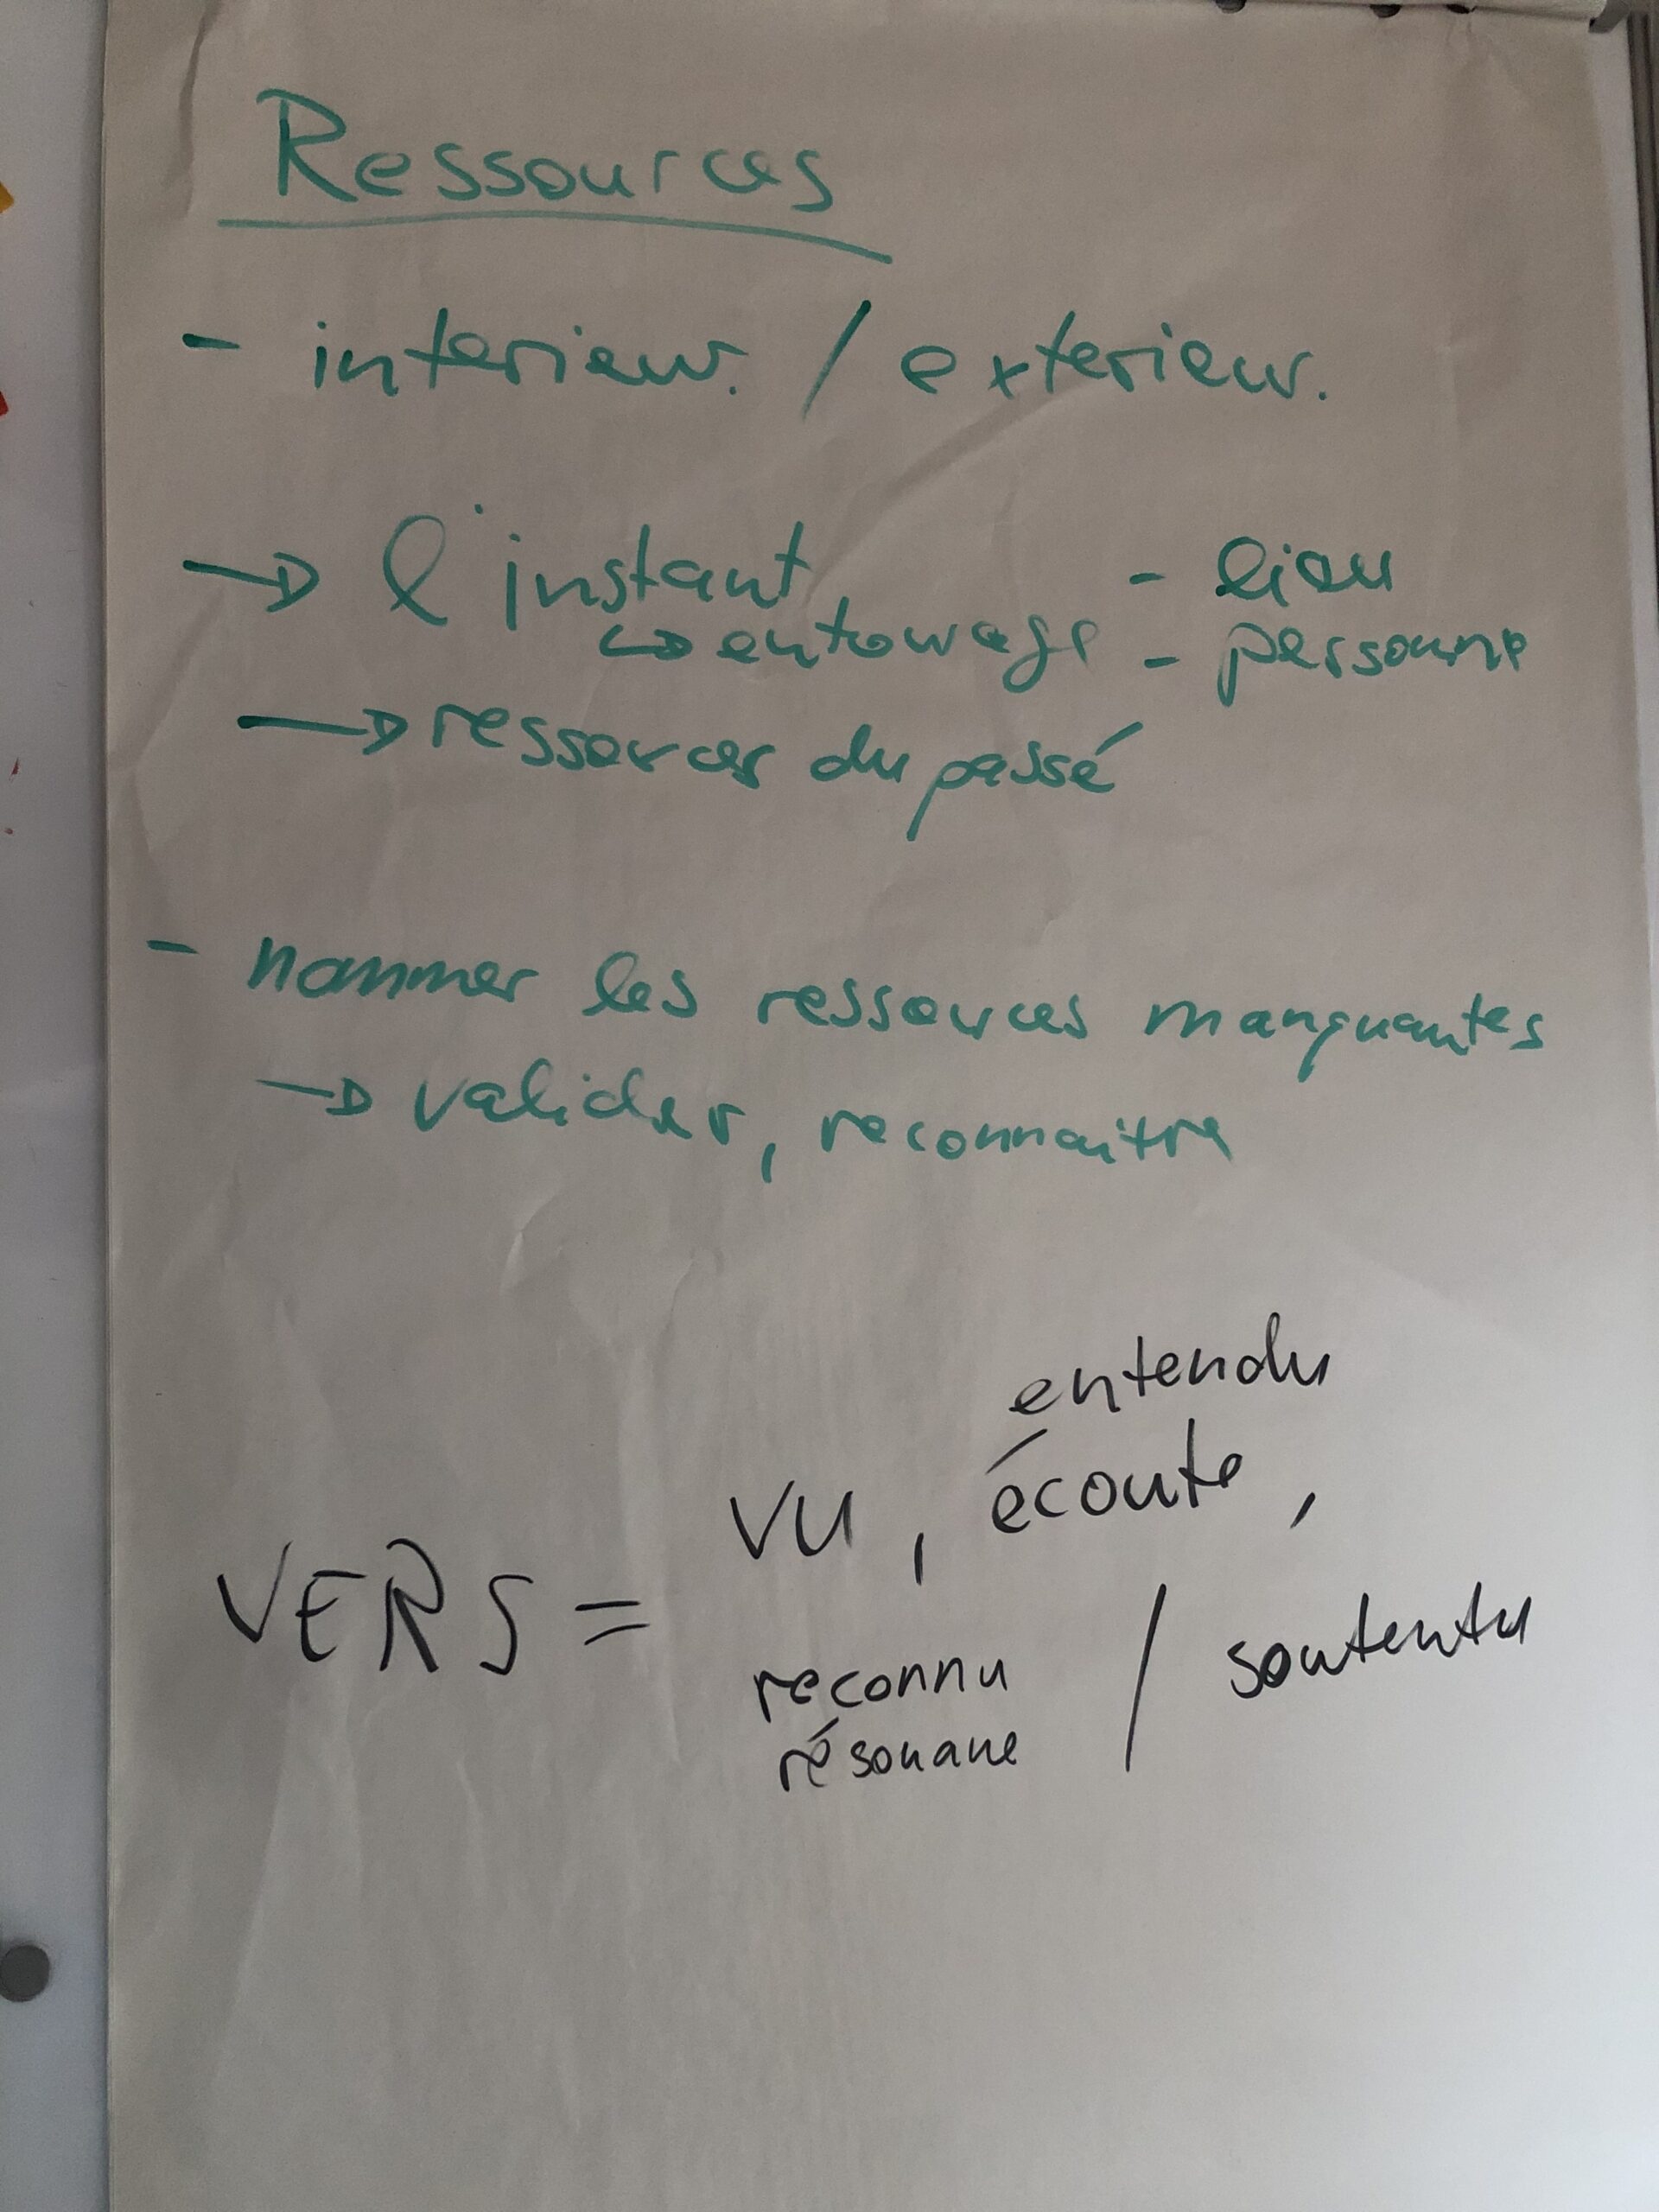 Ressources
- interieur. / exterieur.
→ l'instant - lieu
↳ entourage - personne
→ ressources du passé
- nommer les ressources manquantes
→ valider, reconnaitre
entendu
vu, écouté,
VERS =
reconnu / soutentu
résonance